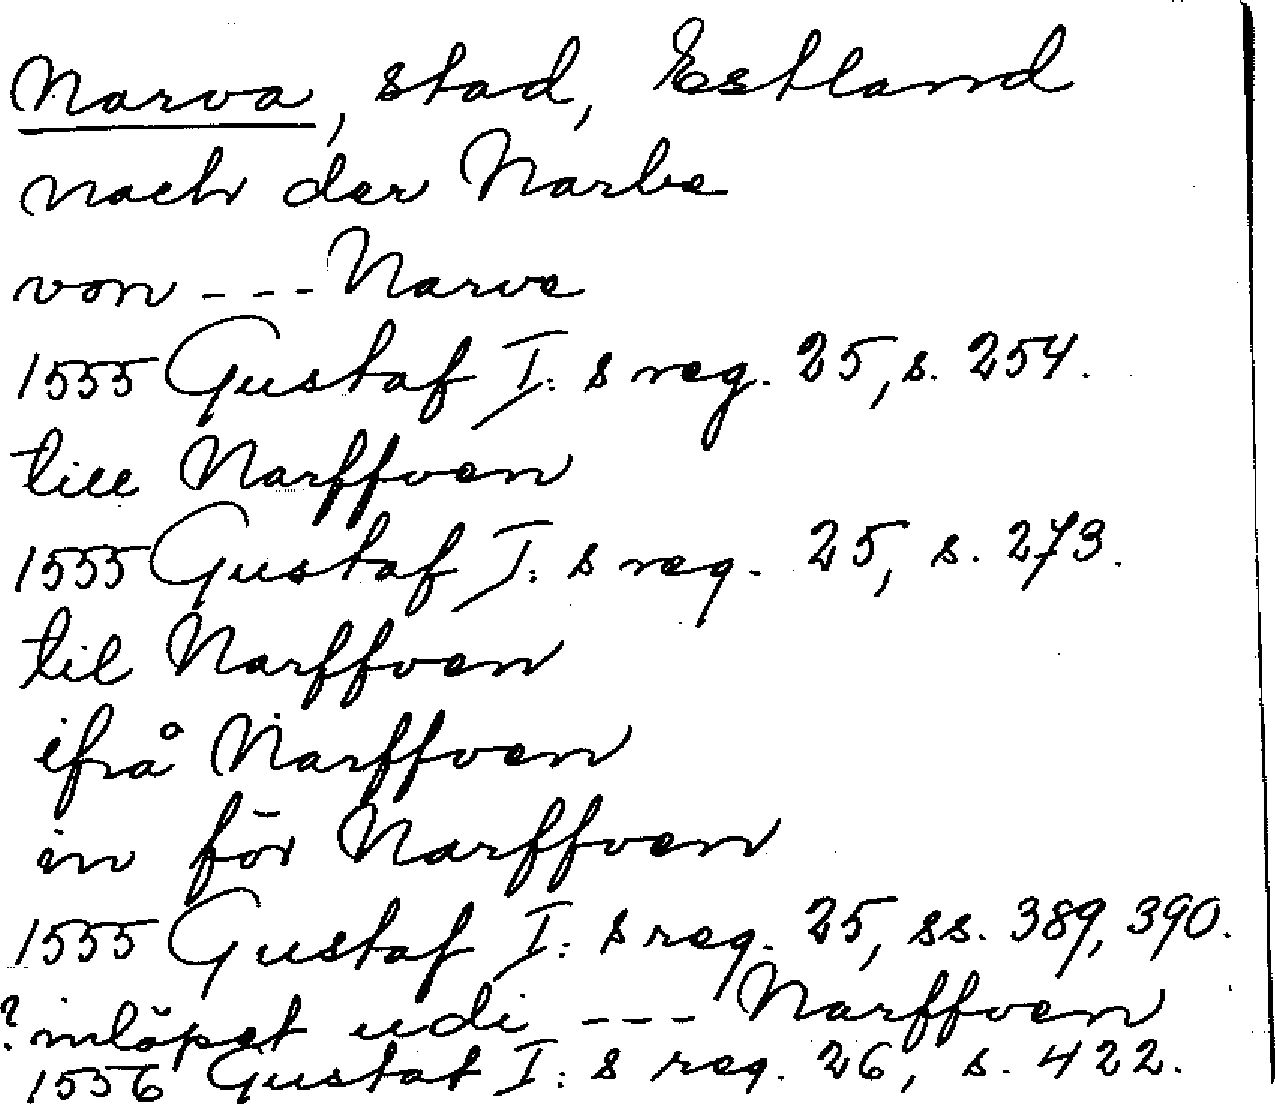 Narva, stad, Estland
nach der Narbe
von --- Narve
1555 Gustaf I:s reg. 25, s. 254.
till Narffven
1555 Gustaf I:s reg. 25, s. 273.
til Narffven
ifrå Narffven
in för Narffven
1555 Gustaf I:s reg. 25, ss. 389, 390.
? inlöpet udi --- Narffven
1556 Gustaf I:s reg. 26, s. 422.